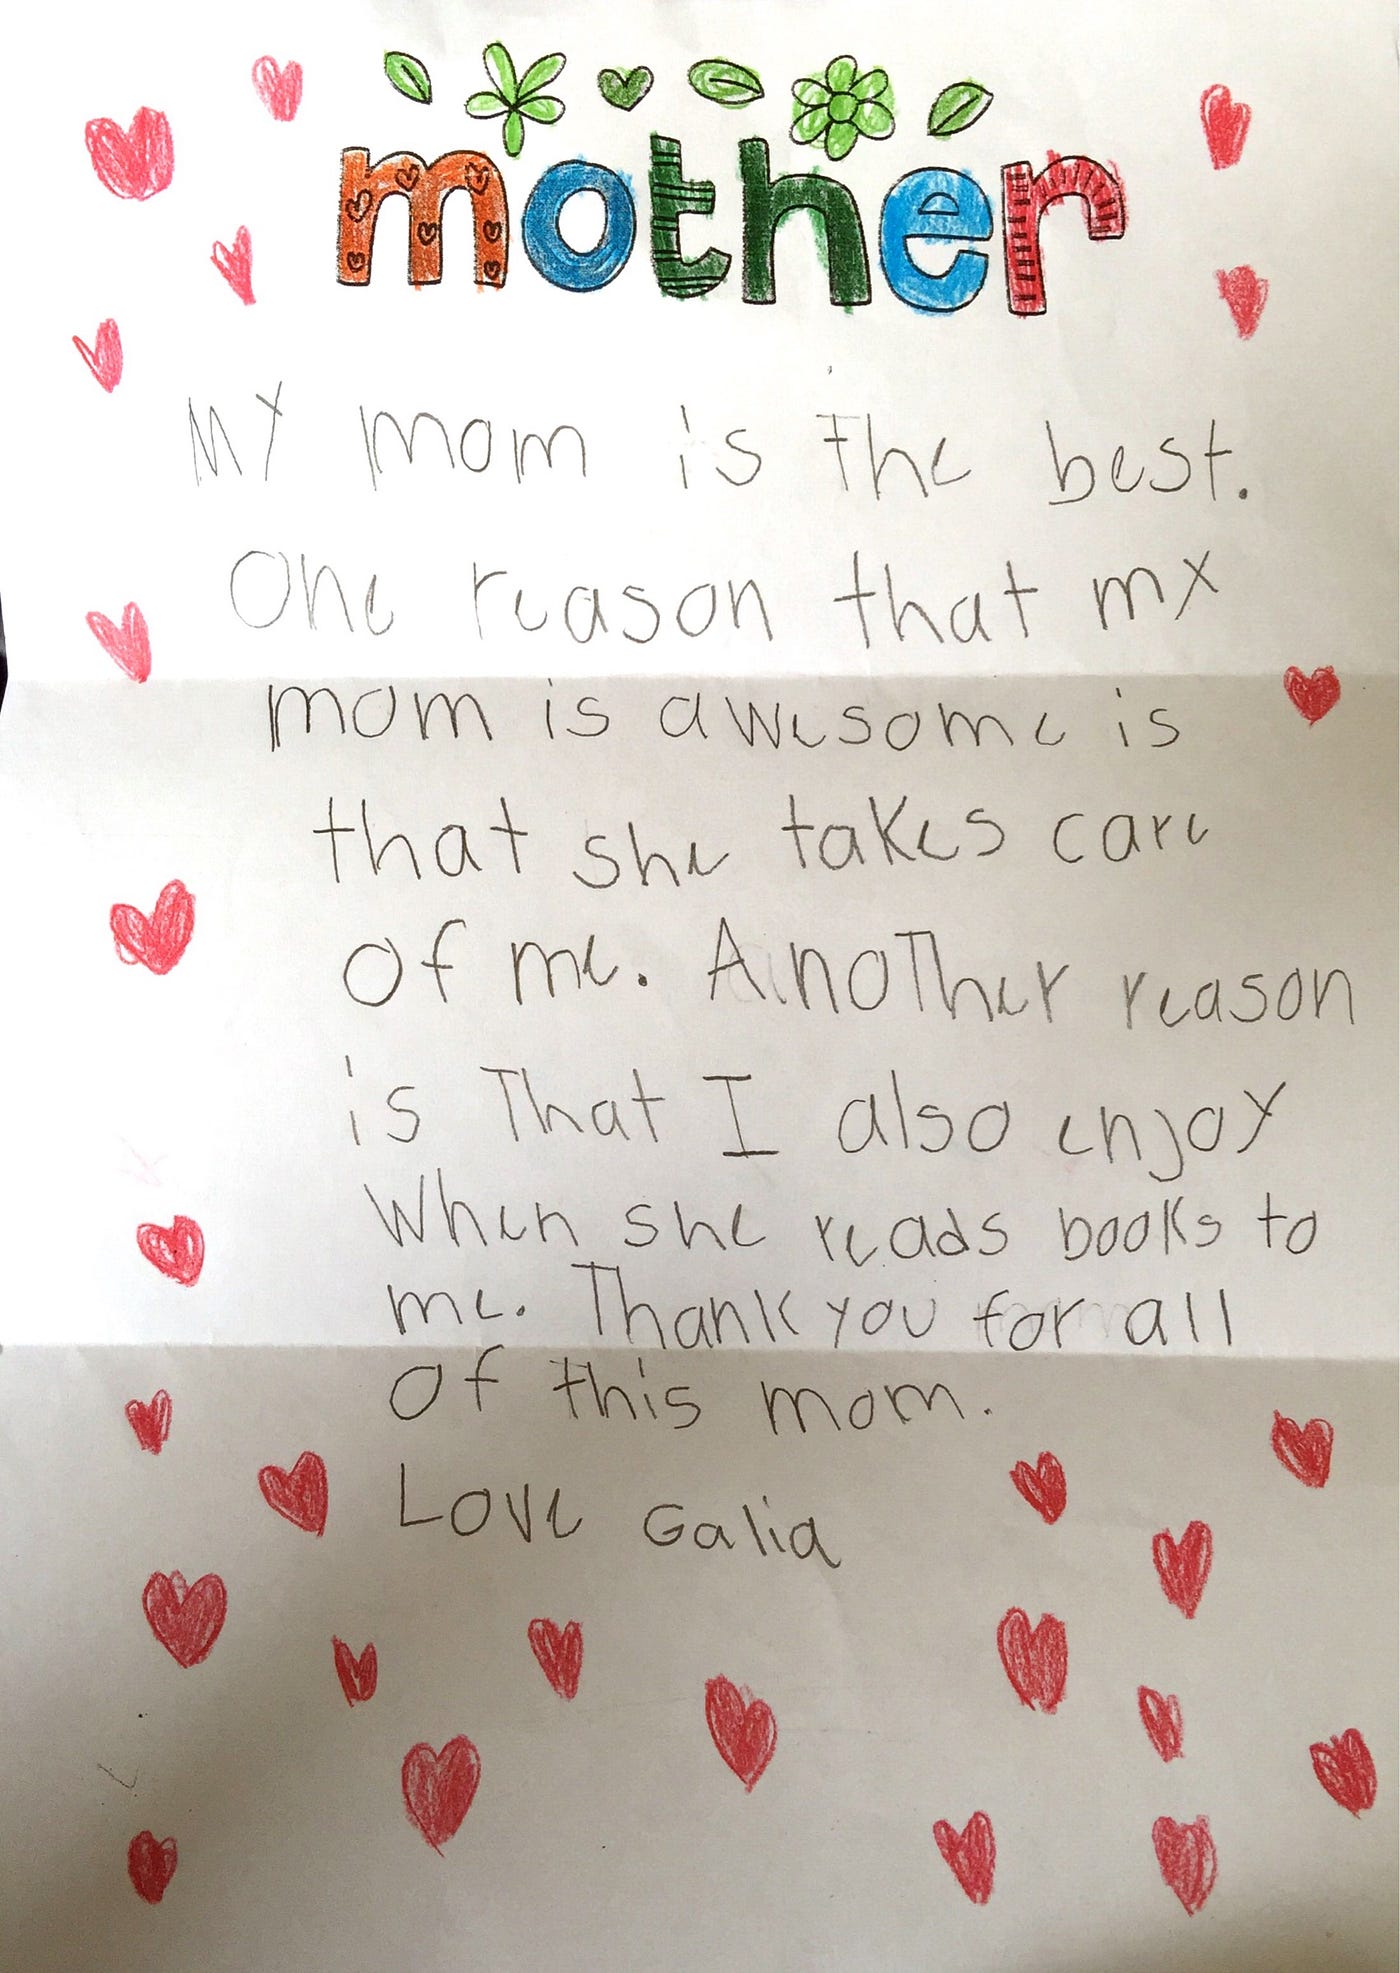 mother
My mom is the best.
One reason that my
mom is awesome is
that she takes care
of me. Another reason
is That I also enjoy
When she reads books to
me. Thank you for all
of this mom.
Love Galia